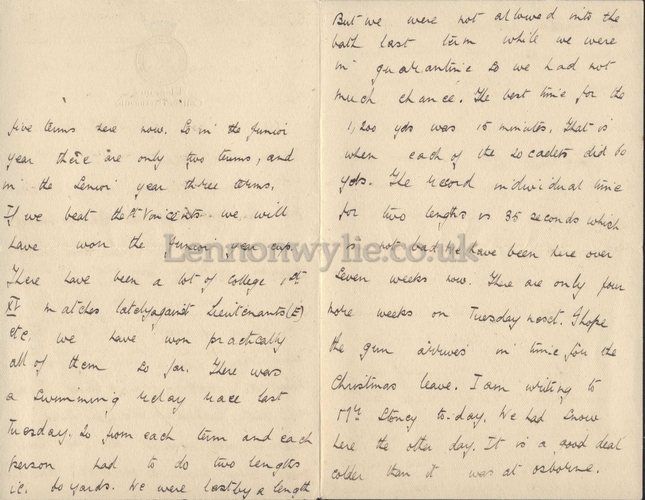 five terms here now. So in the Junior
year there are only two terms, and
in the Senior year three terms.
If we beat the St Vincents we will
have won the junior year cup.
There have been a lot of College 1st
XV matches lately against Lieutenants (E)
etc. we have won practically
all of them so far. There was
a swimming relay race last
Tuesday. 20 from each term and each
person had to do two lengths
i.e. 60 yards. We were last by a length
But we were not allowed into the
bath last term while we were
in quarantine so we had not
much chance. The best time for the
1,200 yds was 15 minutes. That is
when each of the 20 cadets did 60
yds. The record individual time
for two lengths is 35 seconds which
is not bad. We have been here over
seven weeks now. There are only four
more weeks on Tuesday next. I hope
the gun arrives in time for the
Christmas leave. I am writing to
Mr Stoney to-day. We had snow
here the other day. It is a good deal
colder than it was at Osborne.
Lennonwylie.co.uk